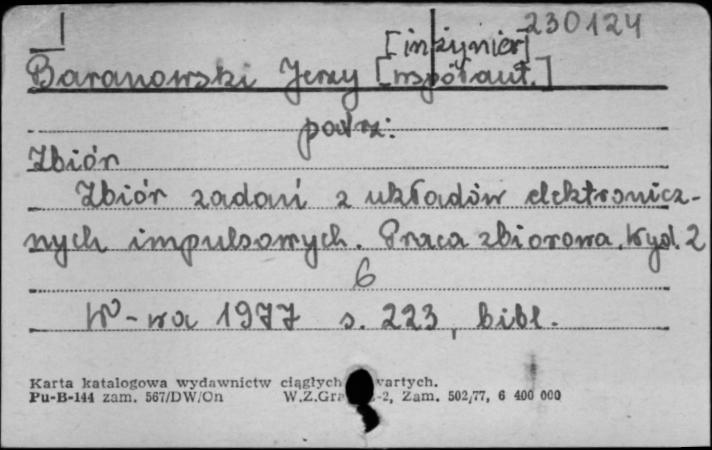 230124
[inżynier]
Baranowski Jerzy [współaut.]
patrz:
Zbiór
Zbiór zadań z układów elektronicz-
nych impulsowych. Praca zbiorowa. Wyd. 2
6
W-wa 1977 s. 223, bibl.
Karta katalogowa wydawnictw ciągłych wartych.
Pu-B-144 zam. 567/DW/On W.Z.Gra -2, Zam. 502/77, 6 400 000